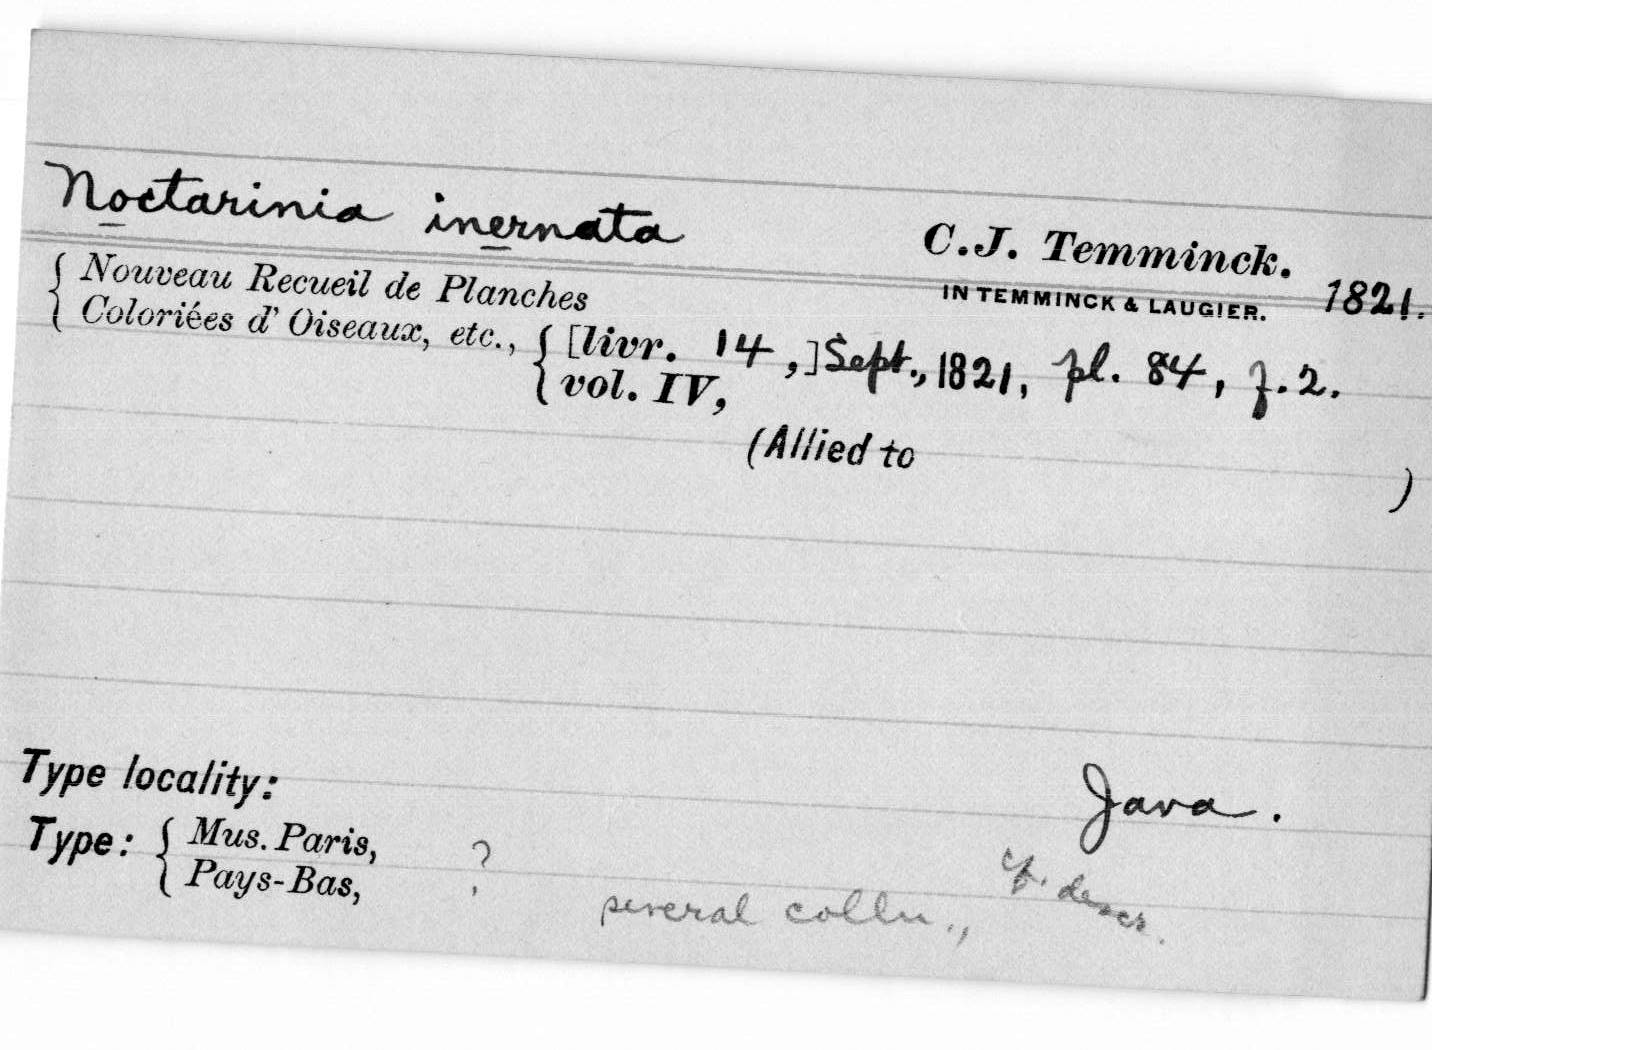 Noctarinia inernata
C.J. Temminck.
IN TEMMINCK & LAUGIER. 1821.
{ Nouveau Recueil de Planches
Coloriées d' Oiseaux, etc., { [livr. 14,] Sept., 1821, pl. 84, f. 2.
vol. IV,
(Allied to )
Type locality: Java.
Type: { Mus. Paris, ?
Pays-Bas,
several colln., cf. descr.